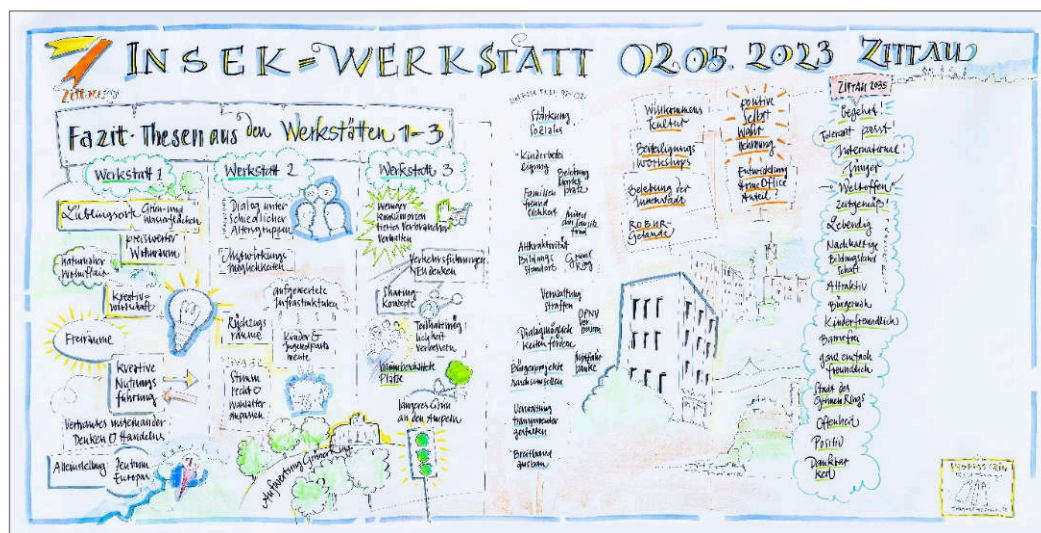 INSEK-WERKSTATT 02.05.2023 ZITTAU
Zittau
Fazit-Thesen aus den Werkstätten 1-3
Werkstatt 1
Lieblingsorte
Grün- und
Wasserflächen
preiswerter
Wohnraum
naturnaher
Kreativ=
wirtschaft
Freiräume
Kreative
Nutzungs
führung
Vertrautes miteinander
Denken & Handeln
Alleinstellung
Zentrum
Europas
Werkstatt 2
Dialog unter
schiedlicher
Altersgruppen
Mitwirkungs
möglichkeiten
aufgewertete
Infrastrukturen
Rückzugs
räume
Kinder &
Jugendparla
mente
Stimm
recht &
Wahlalter
anpassen
Aufwertung Grüner Ring
Werkstatt 3
Weniger
konsumorien
tiertes Verbraucher
Verhalten
Verkehrsführungen
NEU denken
Sharing-
Konzepte
Teilhabemög
lichkeit
verbessern
Baumbeschattete
Plätze
längeres Grün
an den Ampeln
Stärkung
Soziales
Kinderbetei
ligung
Belebung
Marktplatz
Familien
freund
lichkeit
Attraktivität
Bildungs
standort
Grüner
Ring
Verwaltung
straffen
ÖPNV
Dialogmöglich
keiten fördern
Bürgerprojekte
Verwaltung
transparenter
gestalten
Breitband
ausbau
Willkommens
kultur
Beteiligungs
Workshops
Belebung der
Innenstadt
ROBUR-
Gelände
positive
Selbst
Wahr
nehmung
Entwicklung
Home Office
Anteil?
ZITTAU 2035
Begehrt!
Tolerant passt!
International!
Jünger
Weltoffen
zeitgemäß!
Lebendig
Nachhaltige
Bildungsland
schaft
Attraktiv
Bürgernah
Kinderfreundlich
Barrierefrei
ganz einfach
freundlich
Stadt des
Grünen Rings
Offenheit
Positiv
Dankbar
keit